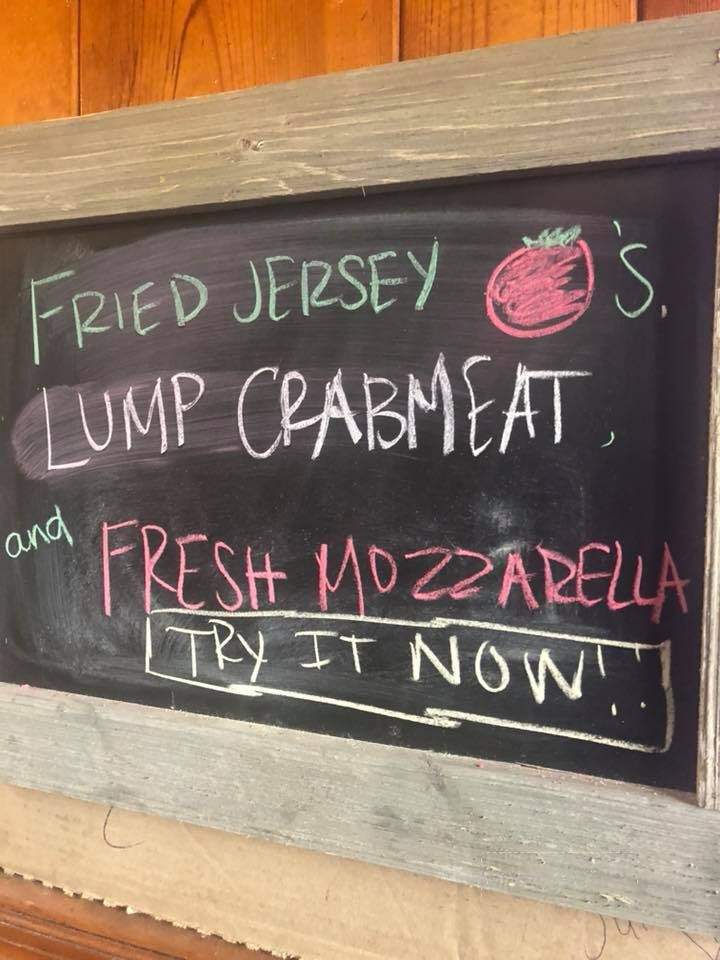 FRIED JERSEY 'S,
LUMP CRABMEAT,
and FRESH MOZZARELLA
TRY IT NOW!!